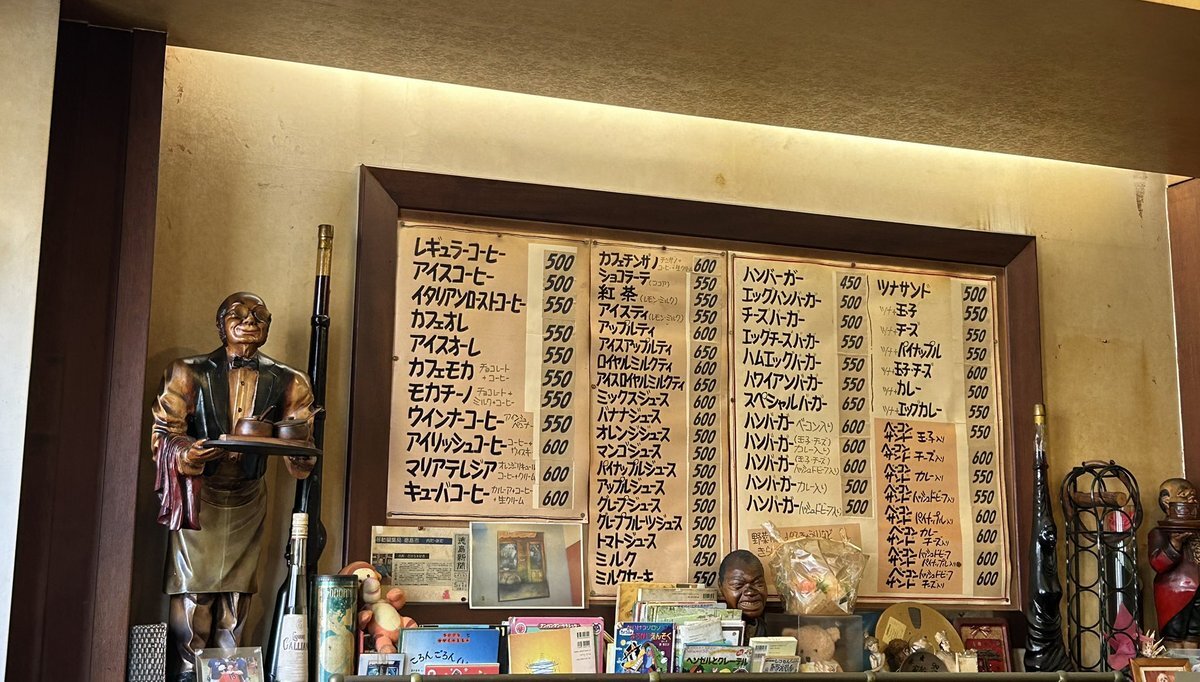 レギュラーコーヒー 500
アイスコーヒー 500
イタリアンローストコーヒー 550
カフェオレ 550
アイスオーレ 550
カフェモカ チョコレート+コーヒー 550
モカチーノ チョコレート+ミルク+コーヒー 550
ウインナーコーヒー 550
アイリッシュコーヒー コーヒー+ウイスキー 600
マリアテレジア オレンジリキュール コーヒー+クリーム 600
キューバコーヒー カルーア+コーヒー+生クリーム 600
カフェテンザノ 600
ショコラーテ(ココア) 550
紅茶(レモン・ミルク) 550
アイスティ(レモン・ミルク) 550
アップルティ 600
アイスアップルティ 650
ロイヤルミルクティ 600
アイスロイヤルミルクティ 650
ミックスジュース 600
バナナジュース 500
オレンジジュース 500
マンゴジュース 500
パイナップルジュース 500
アップルジュース 500
グレープジュース 500
グレープフルーツジュース 500
トマトジュース 500
ミルク 450
ミルクセーキ 550
ハンバーガー 450
エッグハンバーガー 500
チーズバーガー 500
エッグチーズバーガー 550
ハムエッグバーガー 550
ハワイアンバーガー 550
スペシャルバーガー 650
ハンバーガー(ベーコン入り) 600
ハンバーガー(玉子・チーズ カレー入り) 600
ハンバーガー(玉子・チーズ ハッシュドビーフ入り) 600
ハンバーガー(カレー入り) 500
ハンバーガー(ハッシュドビーフ入り) 500
ツナサンド 500
ツナ+玉子 550
ツナ+チーズ 550
ツナ+パイナップル 550
ツナ+玉子・チーズ 600
ツナ+カレー 500
ツナ+エッグカレー 550
ベーコンサンド 玉子入り 550
ベーコンサンド 玉子・チーズ入り 600
ベーコンサンド カレー入り 550
ベーコンサンド ハッシュドビーフ入り 550
ベーコンサンド パイナップル入り 600
ベーコンサンド カレーチーズ入り 600
ベーコンサンド ハッシュドビーフ パイナップル入り 600
ベーコンサンド ハッシュドビーフ チーズ入り 600
徳島新聞
GALLIANO
ヘンゼルとグレーテル